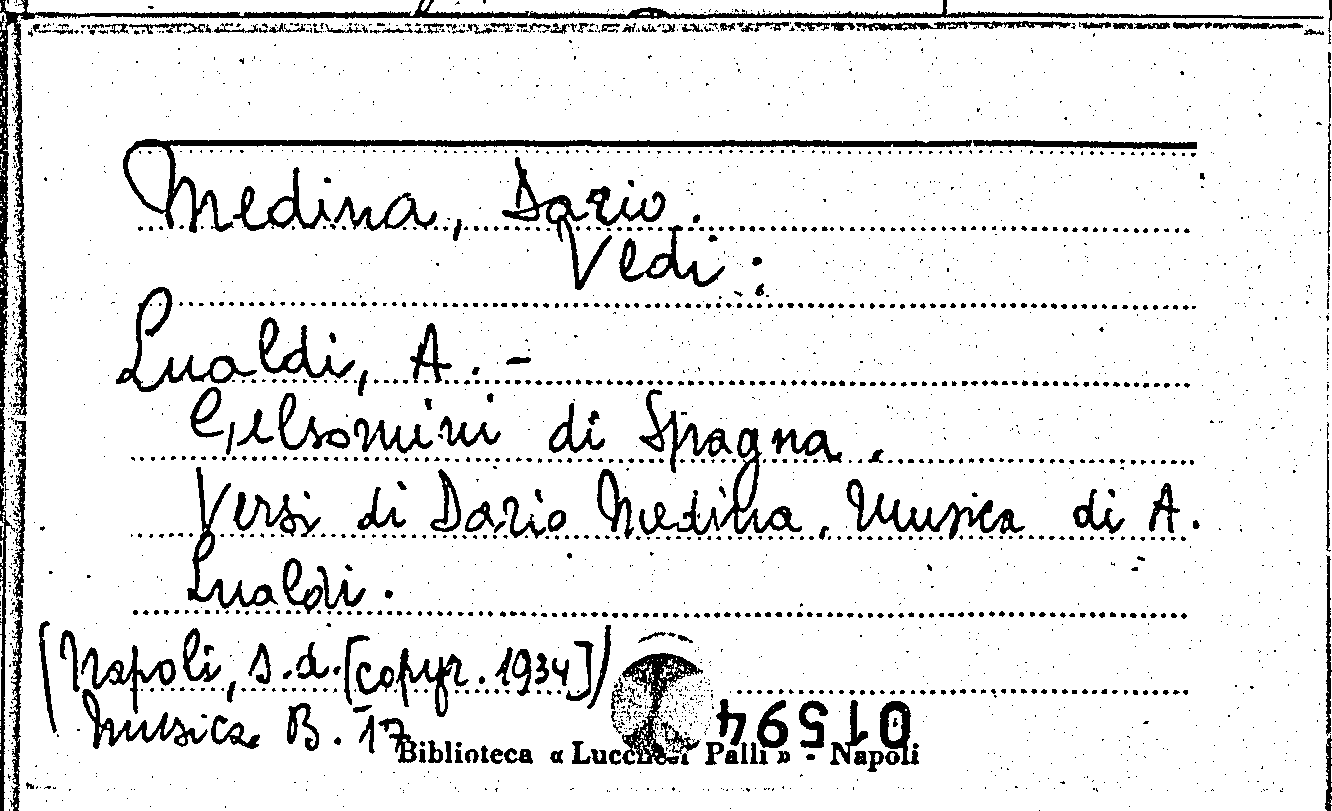 Medina, Dario.
Vedi:
Lualdi, A. -
Gelsomini di Spagna.
Versi di Dario Medina. Musica di A.
Lualdi.
(Napoli, s.d. [copyr. 1934])
Musica B. 17
01594
Biblioteca « Lucchesi Palli » - Napoli